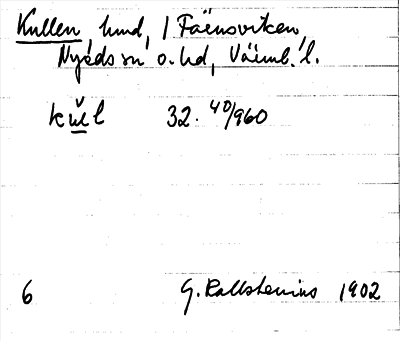 Kullen, hmd, / Färnsviken,
Nyeds sn o. hd, Värml. l.
kŭl 32. 40/960
6 G. Kallstenius 1902